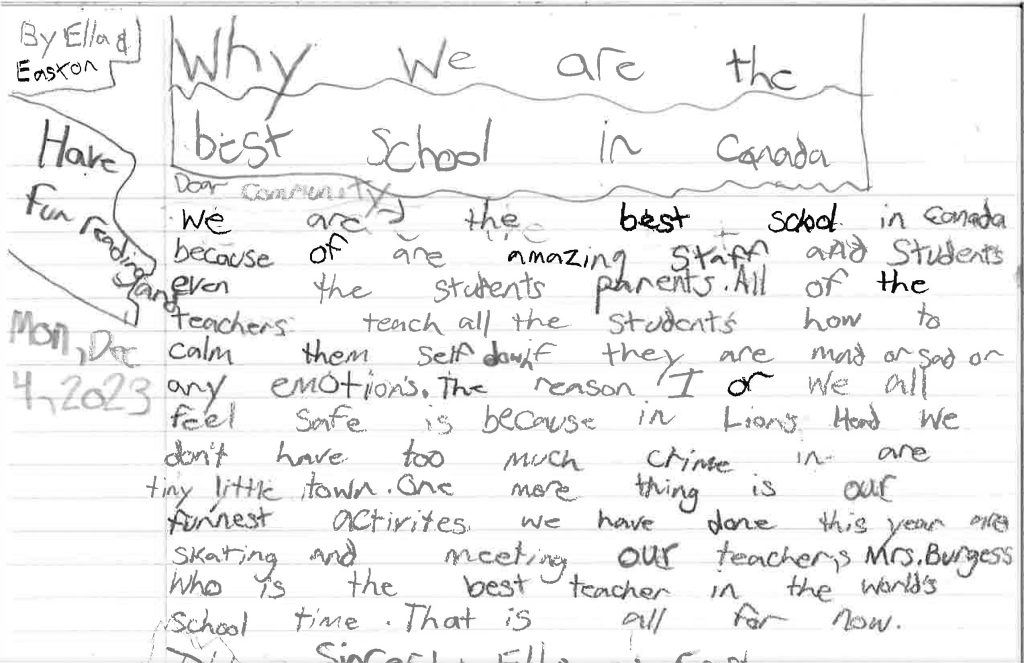 By Ella &
Easton
Why We are the
best School in Canada
Have
fun reading
Mon, Dec
4, 2023
Dear Community
We are the best school in Canada
because of are amazing Staff and Students
even the students parents. All of the
teachers teach all the students how to
calm them self down if they are mad or sad or
any emotions. The reason I or we all
feel safe is because in Lions Head We
don't have too much crime in are
tiny little town. One more thing is our
funnest activites we have done this year are
skating and meeting our teacher, Mrs. Burgess
Who is the best teacher in the world's
School time. That is all for now.